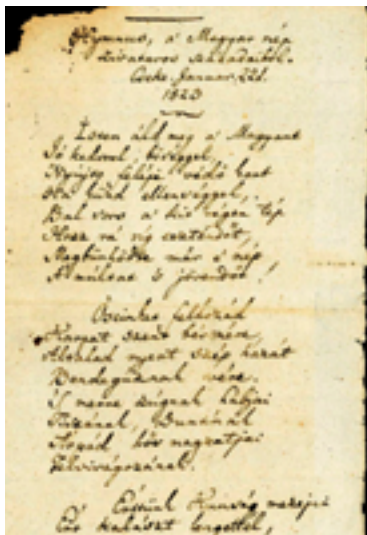 Hymnus, a' Magyar nép
zivataros századaiból.
Cseke. Januar. 22d.
1823
Isten áldd meg a' Magyart
Jó kedvvel, bőséggel,
Nyújts feléje védő kart
Ha küzd ellenséggel,
Bal sors a' kit régen tép
Hozz rá víg esztendőt,
Megbűnhődte már e' nép
A' múltat 's jövendőt!
Őseinket felhozád
Kárpát szent bérczére,
Általad nyert szép hazát
Bendegúznak vére.
'S merre zúgnak habjai
Tiszának, Dunának
Árpád hős magzatjai
Felvirágozának.
Értünk Kunság mezejin
Ért kalászt lengettél,